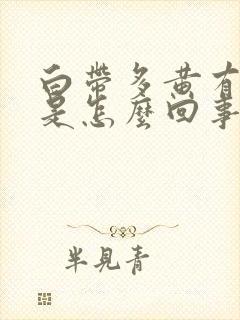 白帶多黃有
是怎麼回事
半見青